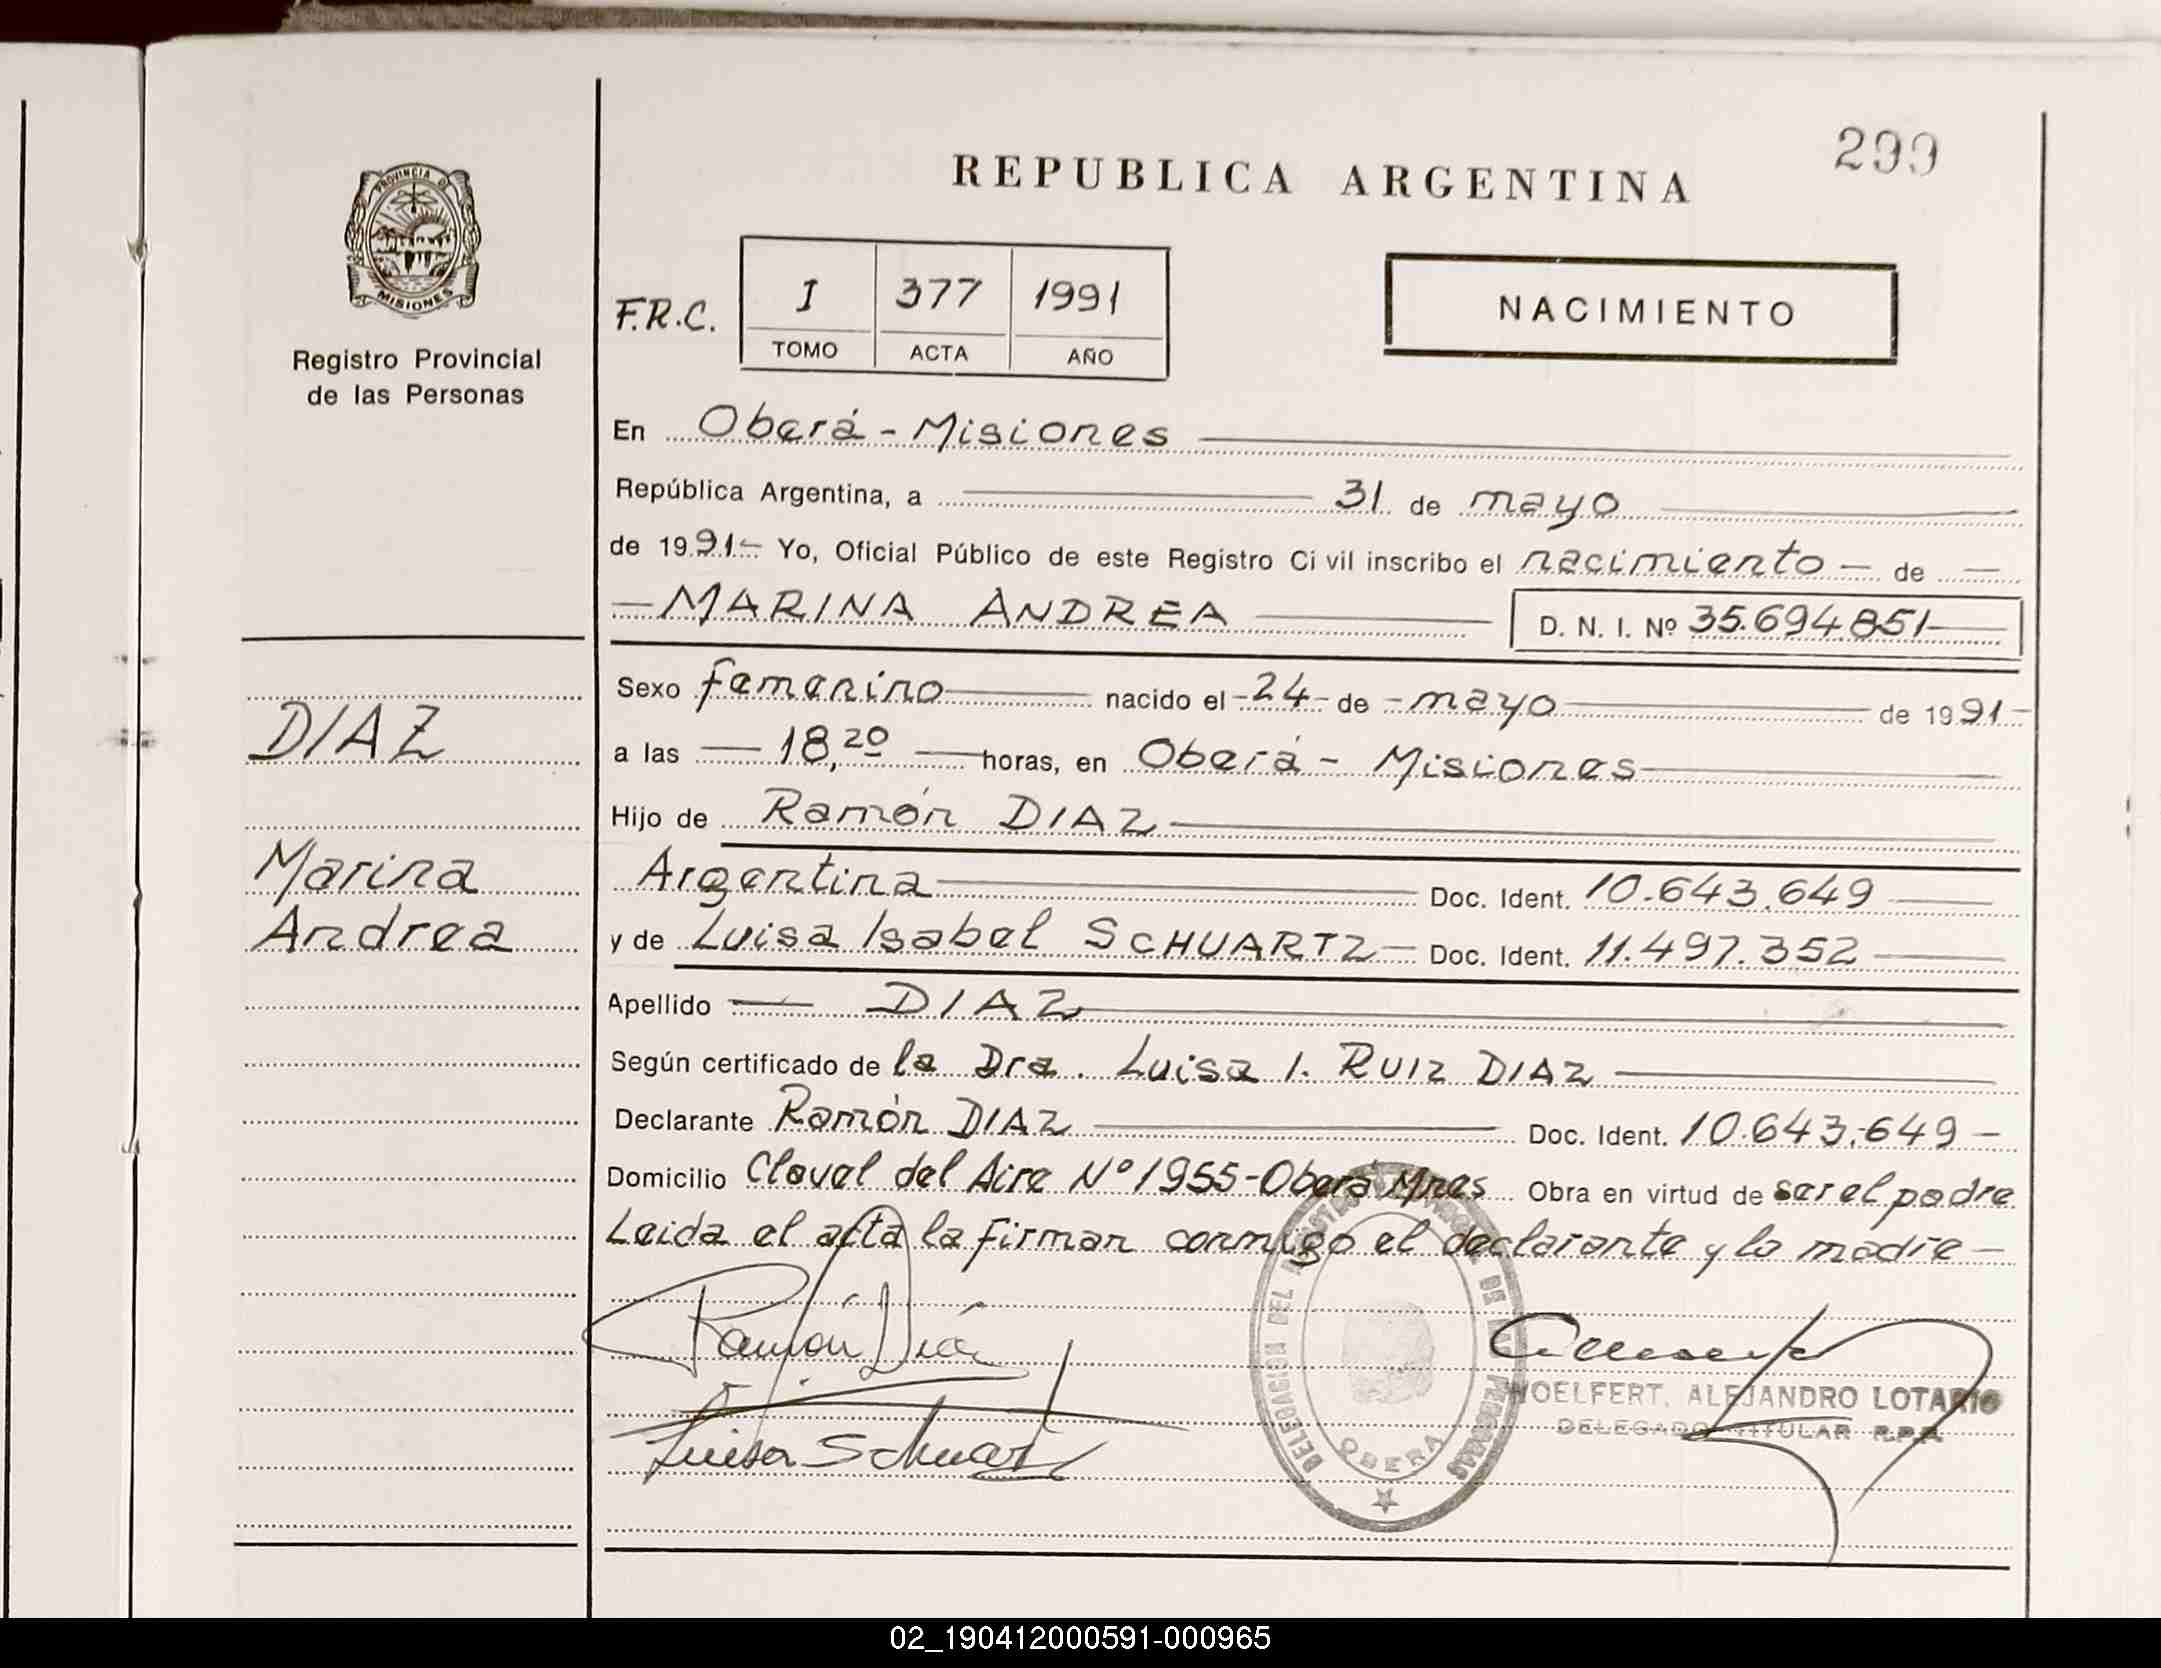 299
REPUBLICA ARGENTINA
PROVINCIA DE
MISIONES
Registro Provincial
de las Personas
F.R.C.
I 377 1991
TOMO ACTA AÑO
NACIMIENTO
En Oberá - Misiones
República Argentina, a 31 de mayo
de 1991- Yo, Oficial Público de este Registro Civil inscribo el nacimiento - de -
- MARINA ANDREA D. N. I. Nº 35.694.851
Sexo femenino nacido el - 24 - de - mayo de 1991 -
DIAZ
a las - 18,20 - horas, en Oberá - Misiones
Hijo de Ramón DIAZ
Marina
Argentina Doc. Ident. 10.643.649
Andrea
y de Luisa Isabel SCHUARTZ - Doc. Ident. 11.497.352
Apellido - DIAZ
Según certificado de la Dra. Luisa I. RUIZ DIAZ
Declarante Ramón DIAZ Doc. Ident. 10.643.649 -
Domicilio Clavel del Aire Nº 1955 - Oberá Mnes Obra en virtud de ser el padre
Leida el acta la firman conmigo el declarante y la madre -
Ramón Diaz
Luisa Schuartz
DELEGACION DEL REGISTRO PROVINCIAL DE LAS PERSONAS
OBERA
WOELFERT, ALEJANDRO LOTARIO
DELEGADO TITULAR R.P.P.
02_190412000591-000965